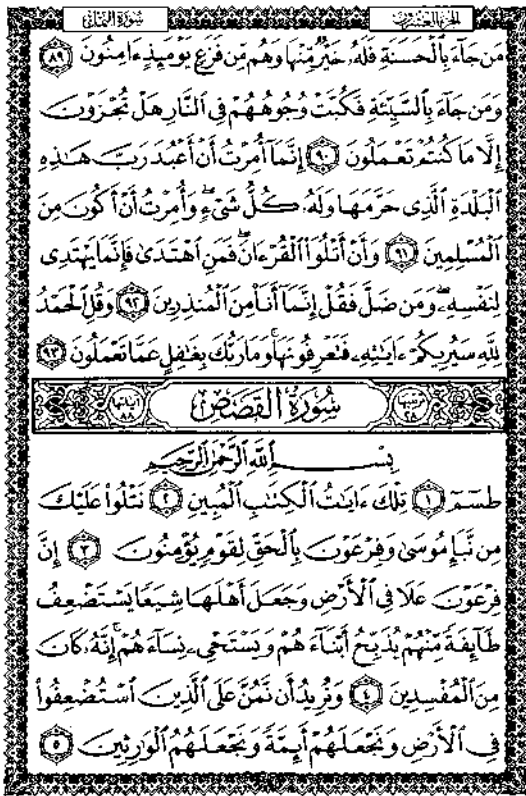 الجزء العشرون
سورة النمل
مَن جَآءَ بِٱلْحَسَنَةِ فَلَهُۥ خَيْرٌ مِّنْهَا وَهُم مِّن فَزَعٍ يَوْمَئِذٍ ءَامِنُونَ ٨٩
وَمَن جَآءَ بِٱلسَّيِّئَةِ فَكُبَّتْ وُجُوهُهُمْ فِي ٱلنَّارِ هَلْ تُجْزَوْنَ
إِلَّا مَا كُنتُمْ تَعْمَلُونَ ٩٠ إِنَّمَآ أُمِرْتُ أَنْ أَعْبُدَ رَبَّ هَٰذِهِ
ٱلْبَلْدَةِ ٱلَّذِي حَرَّمَهَا وَلَهُۥ كُلُّ شَيْءٍ ۖ وَأُمِرْتُ أَنْ أَكُونَ مِنَ
ٱلْمُسْلِمِينَ ٩١ وَأَنْ أَتْلُوَا۟ ٱلْقُرْءَانَ ۖ فَمَنِ ٱهْتَدَىٰ فَإِنَّمَا يَهْتَدِي
لِنَفْسِهِۦ ۖ وَمَن ضَلَّ فَقُلْ إِنَّمَآ أَنَا۠ مِنَ ٱلْمُنذِرِينَ ٩٢ وَقُلِ ٱلْحَمْدُ
لِلَّهِ سَيُرِيكُمْ ءَايَٰتِهِۦ فَتَعْرِفُونَهَا ۚ وَمَا رَبُّكَ بِغَٰفِلٍ عَمَّا تَعْمَلُونَ ٩٣
ترتيبها ٢٨ سُورَةُ القَصَصِ آياتها ٨٨
بِسْمِ ٱللَّهِ ٱلرَّحْمَٰنِ ٱلرَّحِيمِ
طسٓمٓ ١ تِلْكَ ءَايَٰتُ ٱلْكِتَٰبِ ٱلْمُبِينِ ٢ نَتْلُوا۟ عَلَيْكَ
مِن نَّبَإِ مُوسَىٰ وَفِرْعَوْنَ بِٱلْحَقِّ لِقَوْمٍ يُؤْمِنُونَ ٣ إِنَّ
فِرْعَوْنَ عَلَا فِي ٱلْأَرْضِ وَجَعَلَ أَهْلَهَا شِيَعًا يَسْتَضْعِفُ
طَآئِفَةً مِّنْهُمْ يُذَبِّحُ أَبْنَآءَهُمْ وَيَسْتَحْيِۦ نِسَآءَهُمْ ۚ إِنَّهُۥ كَانَ
مِنَ ٱلْمُفْسِدِينَ ٤ وَنُرِيدُ أَن نَّمُنَّ عَلَى ٱلَّذِينَ ٱسْتُضْعِفُوا۟
فِي ٱلْأَرْضِ وَنَجْعَلَهُمْ أَئِمَّةً وَنَجْعَلَهُمُ ٱلْوَٰرِثِينَ ٥